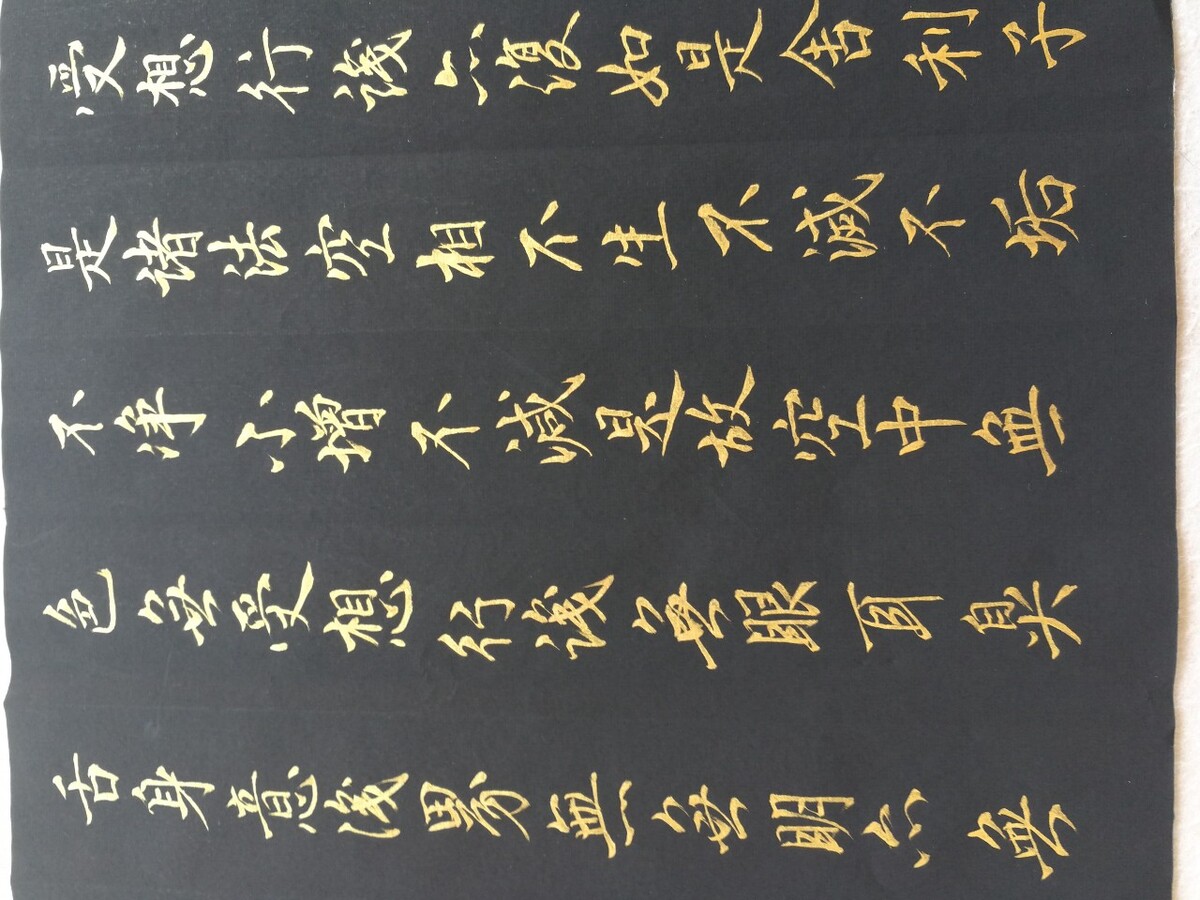 受想行識亦復如是舍利子
是諸法空相不生不滅不垢
不淨不增不減是故空中無
色無受想行識無眼耳鼻
舌身意識界無無明亦無